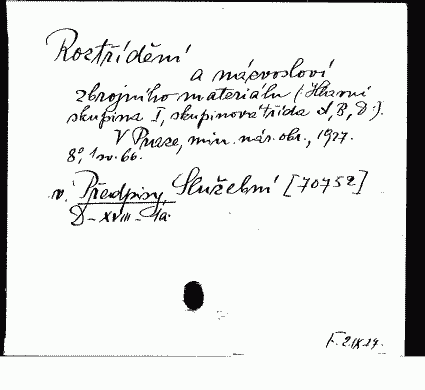 Roztřídění
a názvosloví
zbrojního materiálu (: Hlavní
skupina I, skupinová třída A, B, D :).
V Praze, min. nár. obr., 1927.
8°, 1 sv. 66.
v. Předpisy, Služební [70752]
D-XVIII-1a.
F. 2.IX.